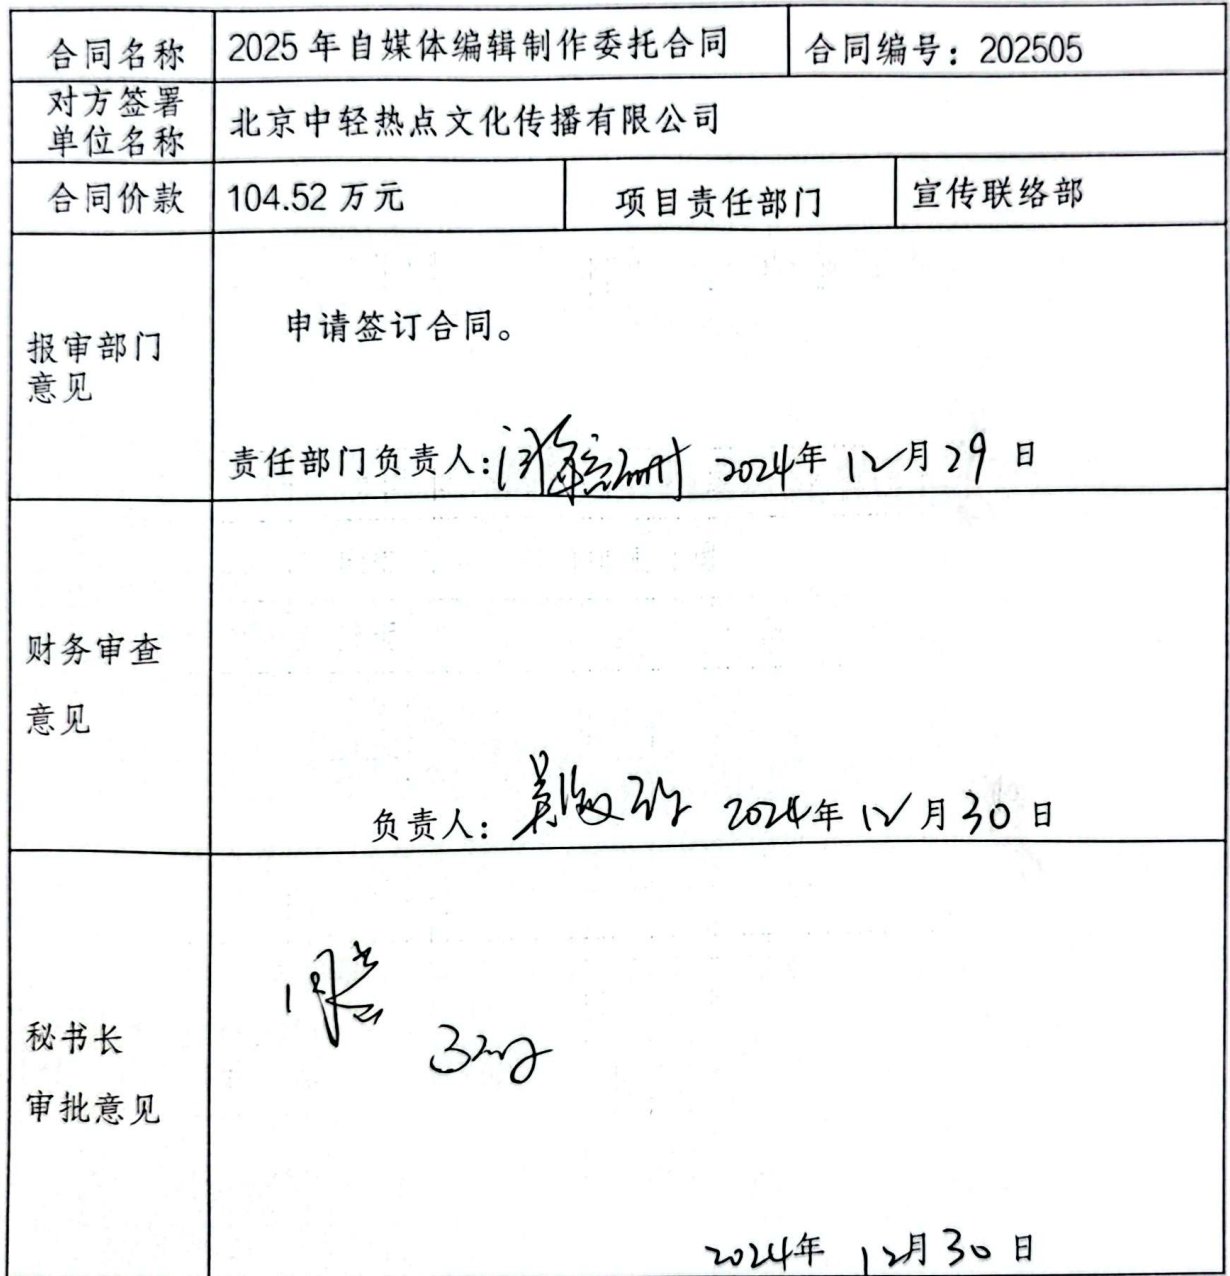 合同名称 2025年自媒体编辑制作委托合同 合同编号：202505
对方签署
单位名称 北京中轻热点文化传播有限公司
合同价款 104.52万元 项目责任部门 宣传联络部
报审部门
意见
申请签订合同。
责任部门负责人： 2024年12月29日
财务审查
意见
负责人： 2024年12月30日
秘书长
审批意见
同意
2024年12月30日